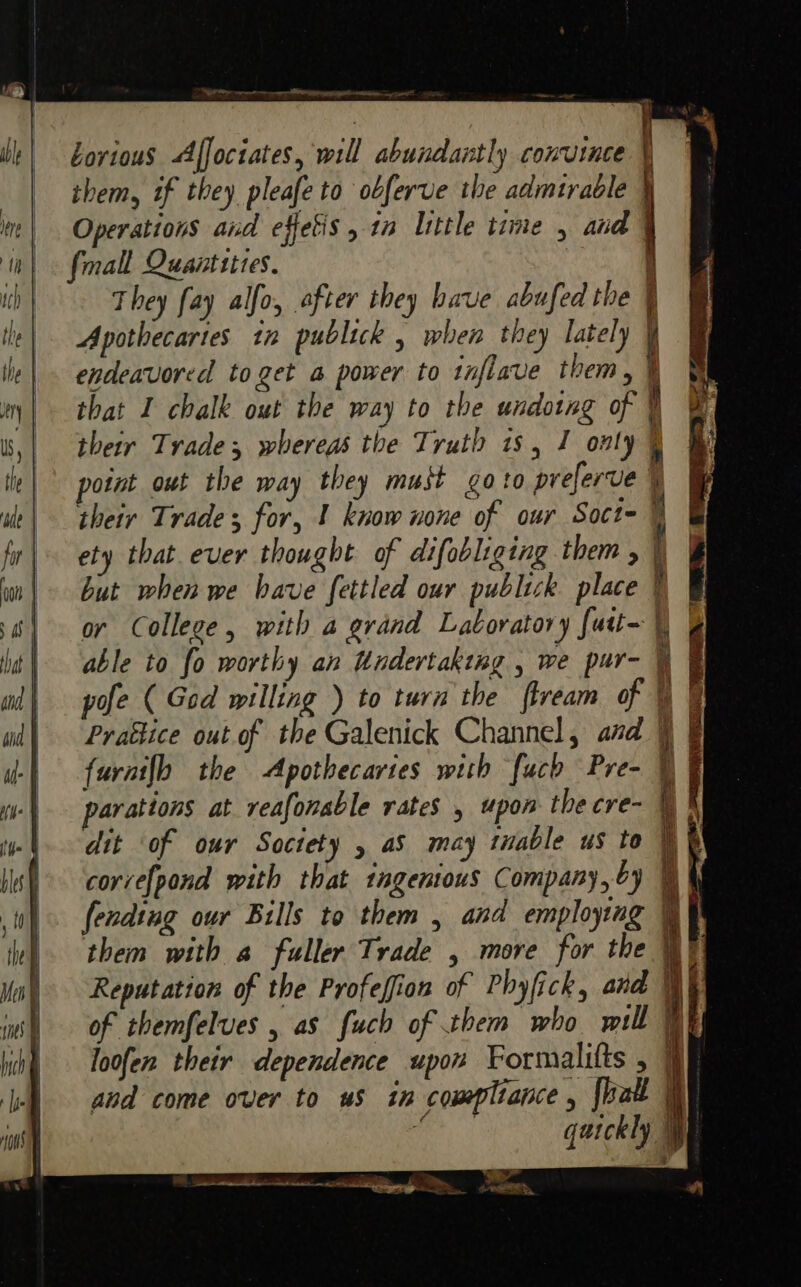 borious Aſſociates, will abundantly convince
them, if they pleaſe to obſerve the admirable
Operations and effects, in little time, and
ſmall Quantities.
They ſay alſo, after they have abuſed the
Apothecaries in publick, when they lately
endeavored to get a power to inſlave them,
that I chalk out the way to the undoing of
their Trade; whereas the Truth is, I only
point out the way they muſt go to preſerve
their Trade; for, I know none of our Soci-
ety that ever thought of diſobliging them,
but when we have ſettled our publick place
or College, with a grand Laboratory ſuit-
able to ſo worthy an Undertaking, we pur-
poſe ( God willing ) to turn the ſtream of
Practice out of the Galenick Channel, and
furniſh the Apothecaries with ſuch Pre-
parations at reaſonable rates, upon the cre-
dit of our Society, as may inable us to
correſpond with that ingenious Company, by
ſending our Bills to them, and employing
them with a fuller Trade, more for the
Reputation of the Profeſſion of Phyſick, and
of themſelves, as ſuch of them who will
looſen their dependence upon Formaliſts,
and come over to us in compliance, ſhall
quickly